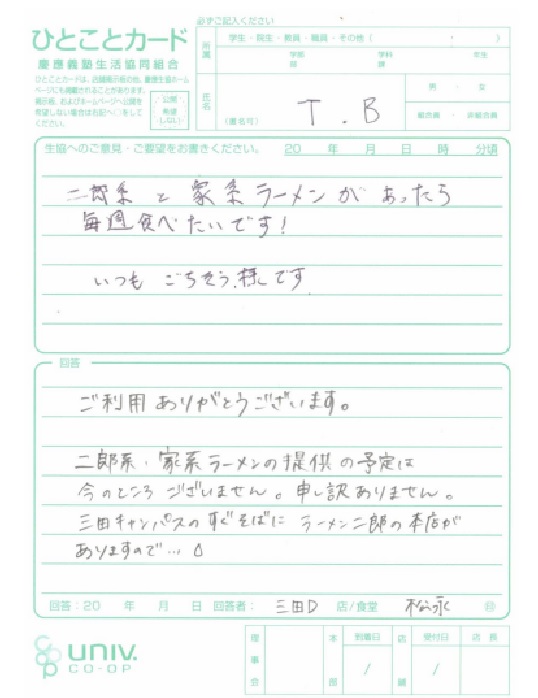 必ずご記入ください
ひとことカード
慶應義塾生活協同組合
ひとことカードは、店舗掲示板の他、慶應生協ホームページにも掲載されることがあります。
掲示板、およびホームページへ公開を希望しない場合は右記へ○をしてください。
公開希望しない
所属
学生・院生・教員・職員・その他（　　）
学部
学科
年生
氏名
（匿名可）
T.B
男・女
組合員・非組合員
生協へのご意見・ご要望をお書きください。 20 年 月 日 時 分頃
二郎系と家系ラーメンがあったら
毎週食べたいです！
いつも ごちそう様です
回答
ご利用ありがとうございます。
二郎系・家系ラーメンの提供の予定は
今のところございません。申し訳ありません。
三田キャンパスのすぐそばにラーメン二郎の本店が
ありますので…
回答：20 年 月 日 回答者： 三田D 店/食堂 松永 印
UNIV.
CO-OP
理事会
本部
到着日
/
店舗
受付日
/
店長